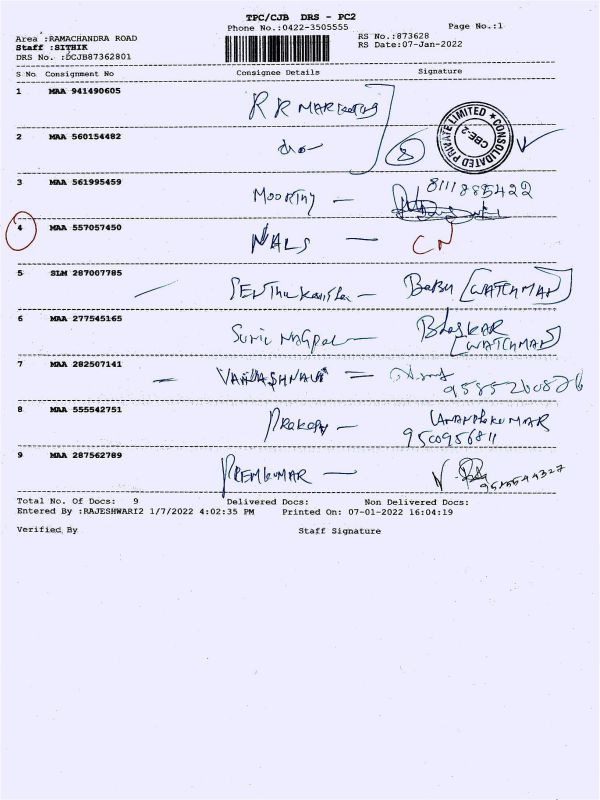 TPC/CJB DRS - PC2
Phone No.:0422-3505555 Page No.:1
Area :RAMACHANDRA ROAD RS No.:873628
Staff :SITHIK RS Date:07-Jan-2022
DRS No. :DCJB87362801
S No Consignment No Consignee Details Signature
1 MAA 941490605 R R MARKETING
CONSOLIDATED PRIVATE LIMITED CBE-2
2 MAA 560154482 do
3 MAA 561995459 MOORTHY - 8111885422
4 MAA 557057450 NALS - CN
5 SLM 287007785 - BABU [WATCHMAN]
6 MAA 277545165 SUNIL NAGPAL - BHASKAR [WATCHMAN]
7 MAA 282507141
8 MAA 555542751 - ANANDHKUMAR
950956811
9 MAA 287562789 PREMKUMAR -
Total No. Of Docs: 9 Delivered Docs: Non Delivered Docs:
Entered By :RAJESHWARI2 1/7/2022 4:02:35 PM Printed On: 07-01-2022 16:04:19
Verified By Staff Signature